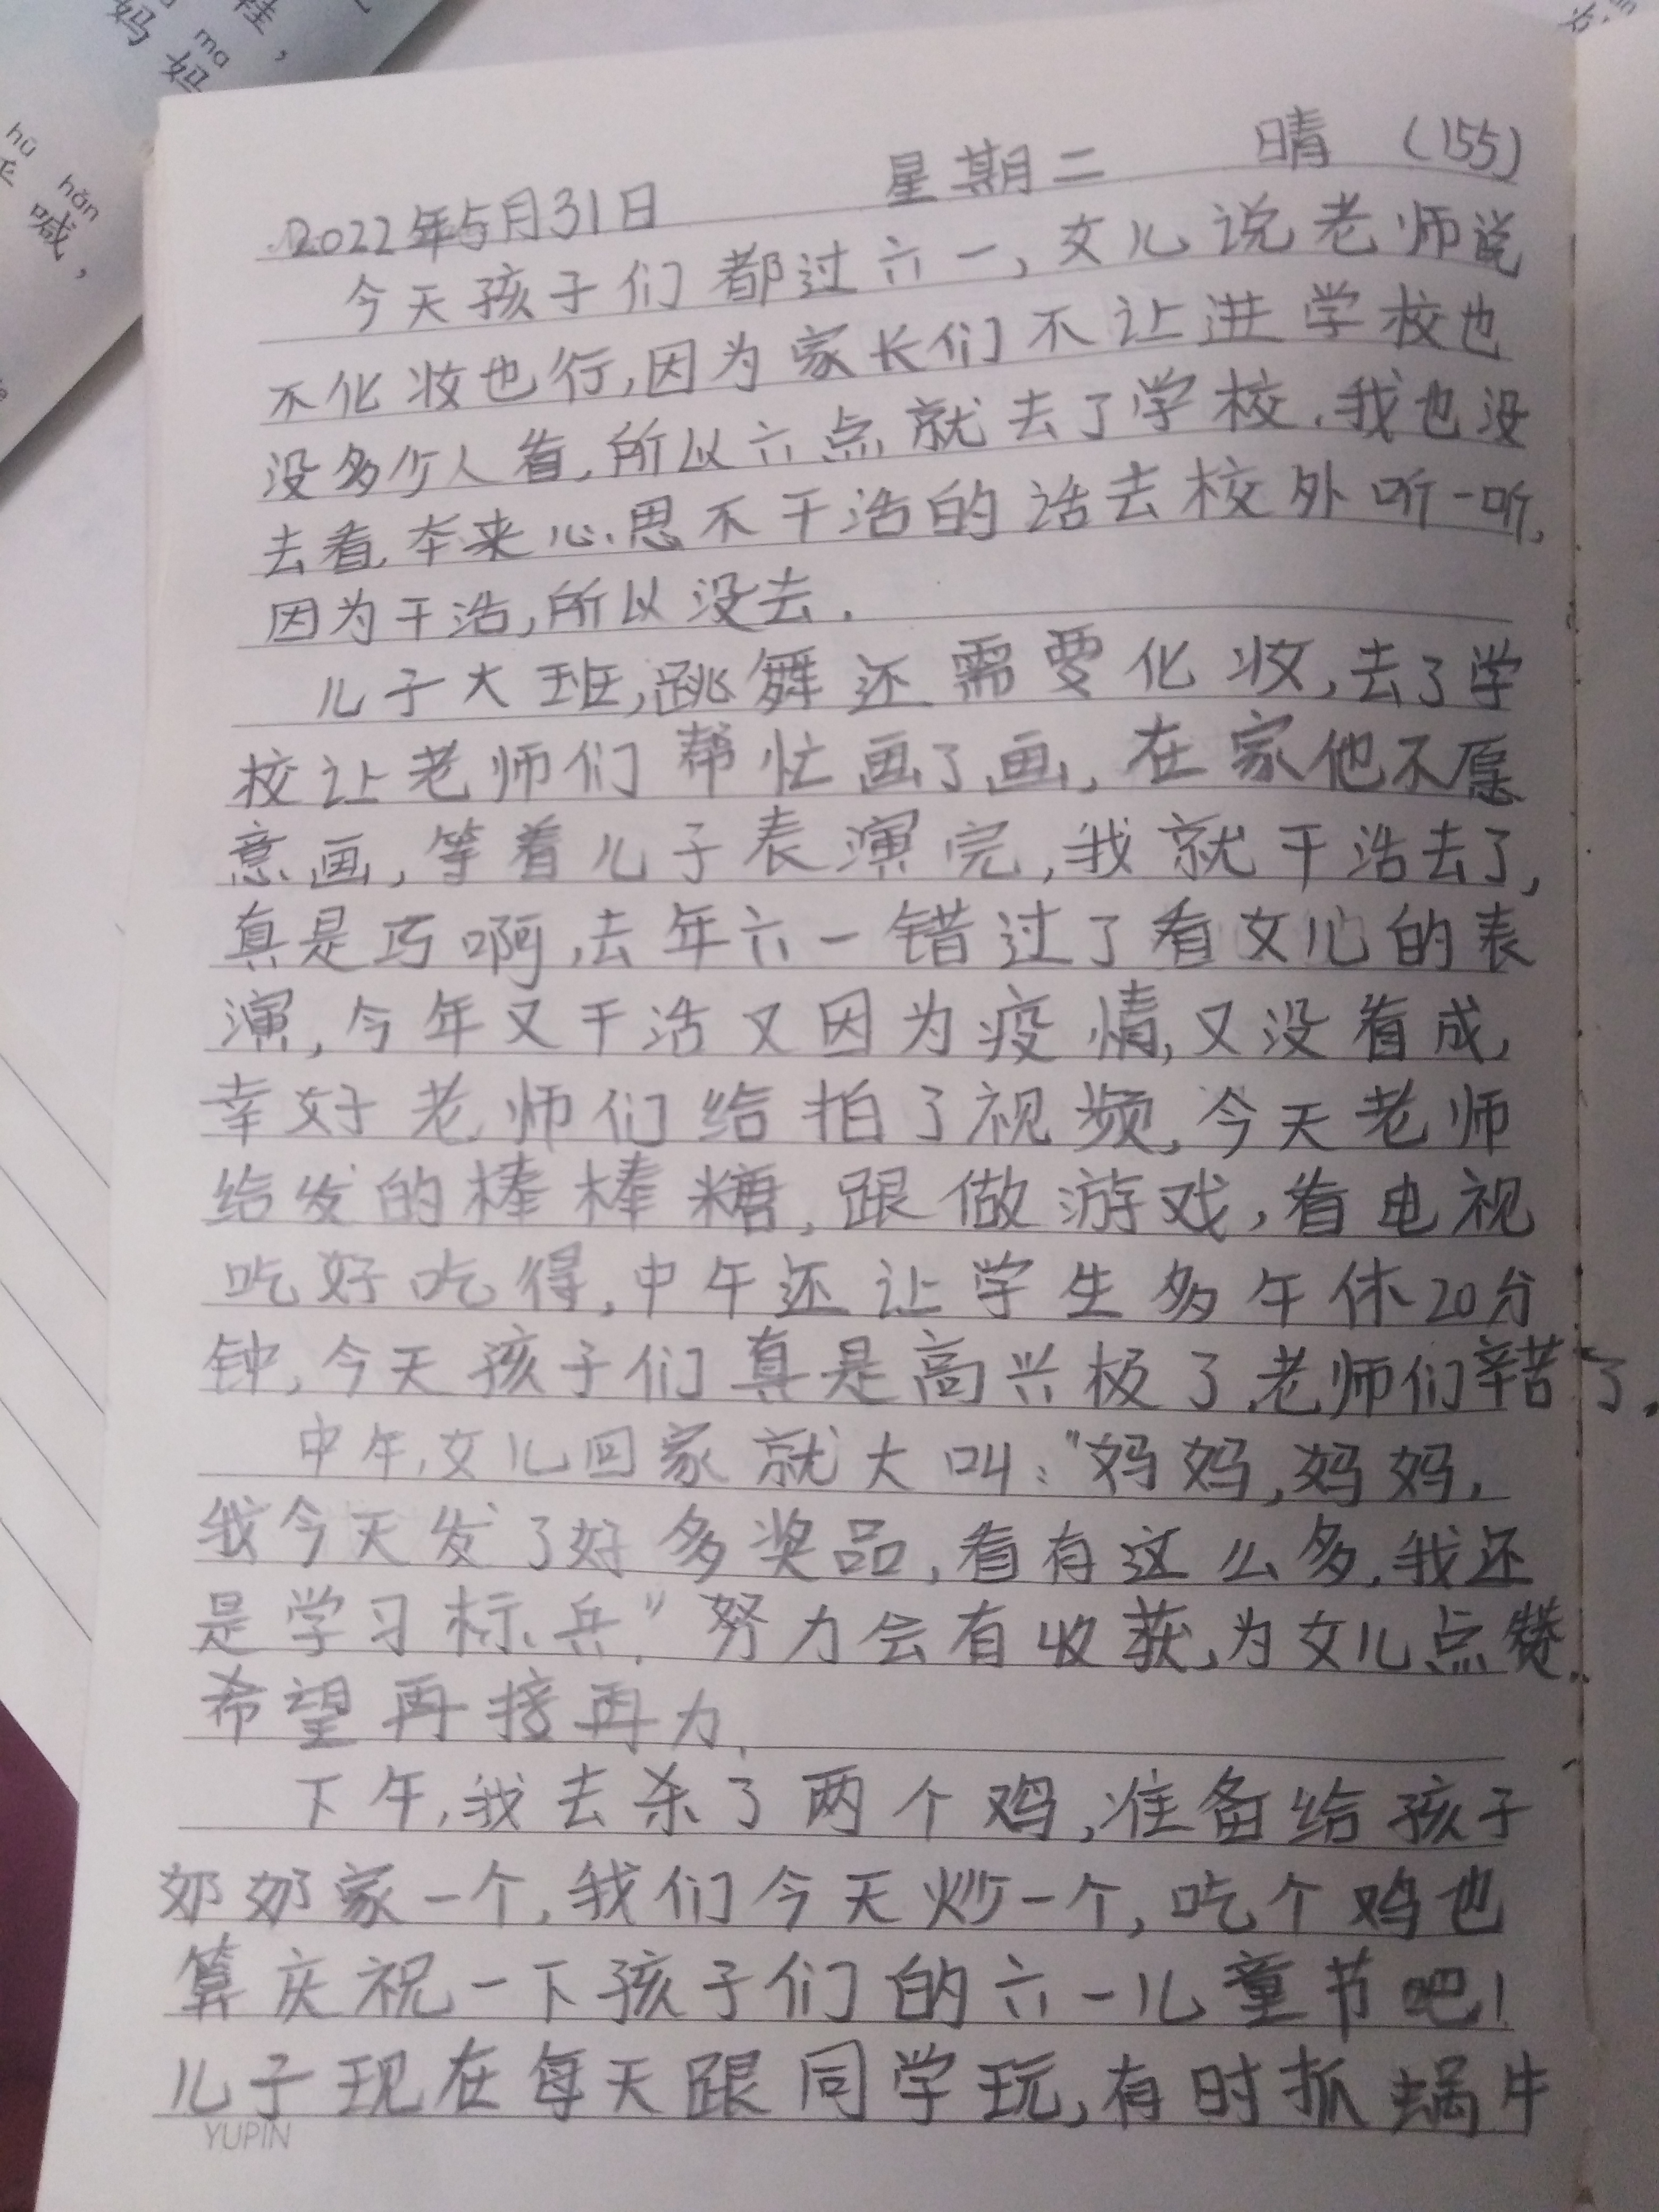 鞋，
妈 妈
ma
hū hǎn
喊，
2022年5月31日 星期二 晴 (155)
今天孩子们都过六一，女儿说老师说
不化妆也行，因为家长们不让进学校也
没多少人看，所以六点就去了学校．我也没
去看．本来心思不干活的话去校外听一听，
因为干活，所以没去．
儿子大班，跳舞还需要化妆，去了学
校让老师们帮忙画了画，在家他不愿
意画，等着儿子表演完，我就干活去了，
真是巧啊，去年六一错过了看女儿的表
演，今年又干活又因为疫情，又没看成，
幸好老师们给拍了视频，今天老师
给发的棒棒糖，跟做游戏，看电视
吃好吃得，中午还让学生多午休20分
钟，今天孩子们真是高兴极了．老师们辛苦了．
中午，女儿回家就大叫："妈妈，妈妈，
我今天发了好多奖品，看有这么多，我还
是学习标兵．"努力会有收获，为女儿点赞．
希望再接再力．
下午，我去杀了两个鸡，准备给孩子
奶奶家一个，我们今天炒一个，吃个鸡也
算庆祝一下孩子们的六一儿童节吧！
儿子现在每天跟同学玩，有时抓蜗牛
YUPIN